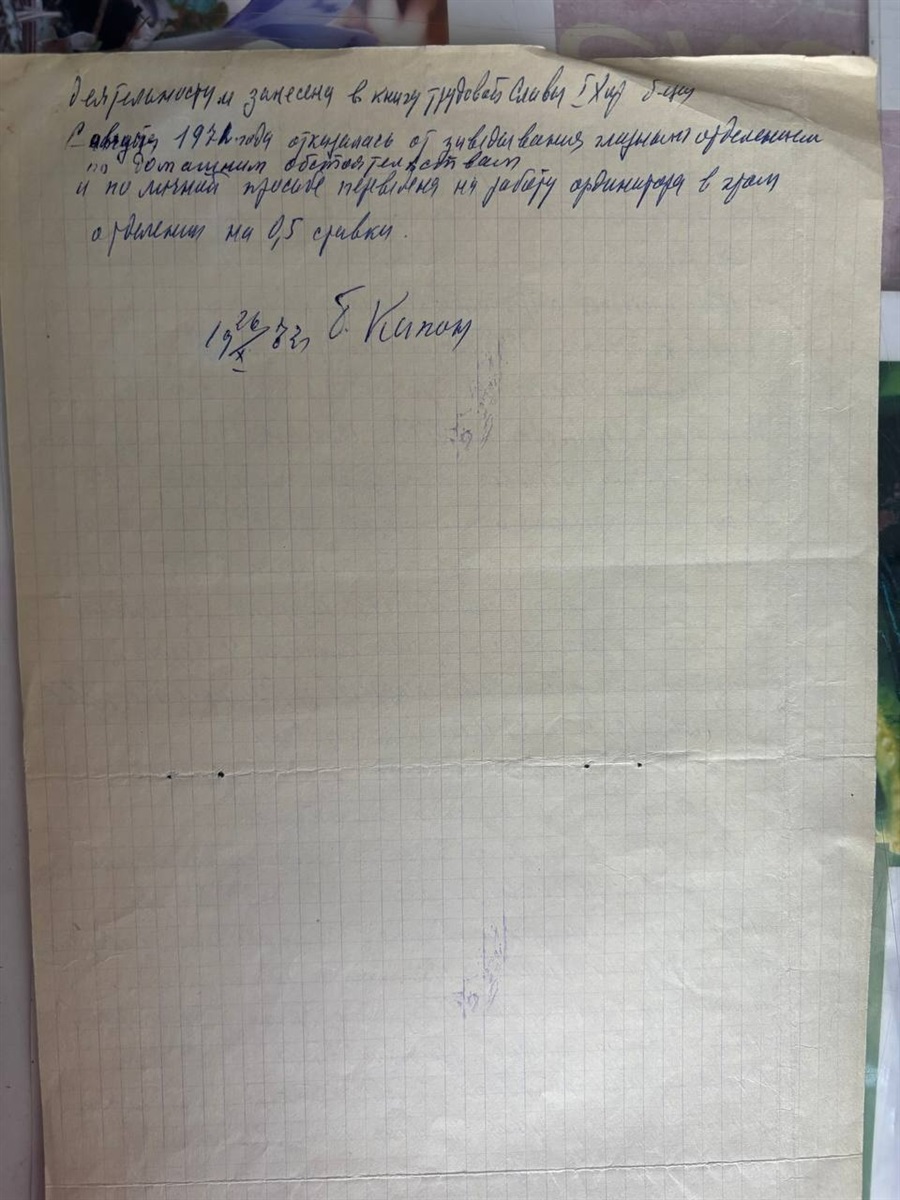 деятельностум занесена в книгу трудовой Славы I Хир б-цы
С августа 197 года отказалась от заведывания глазным отделением
по домашним обстоятельствам
и по личной просьбе переведена на работу ординатора в глазн
отделении на 0,5 ставки.
26
19 72г Б.
X